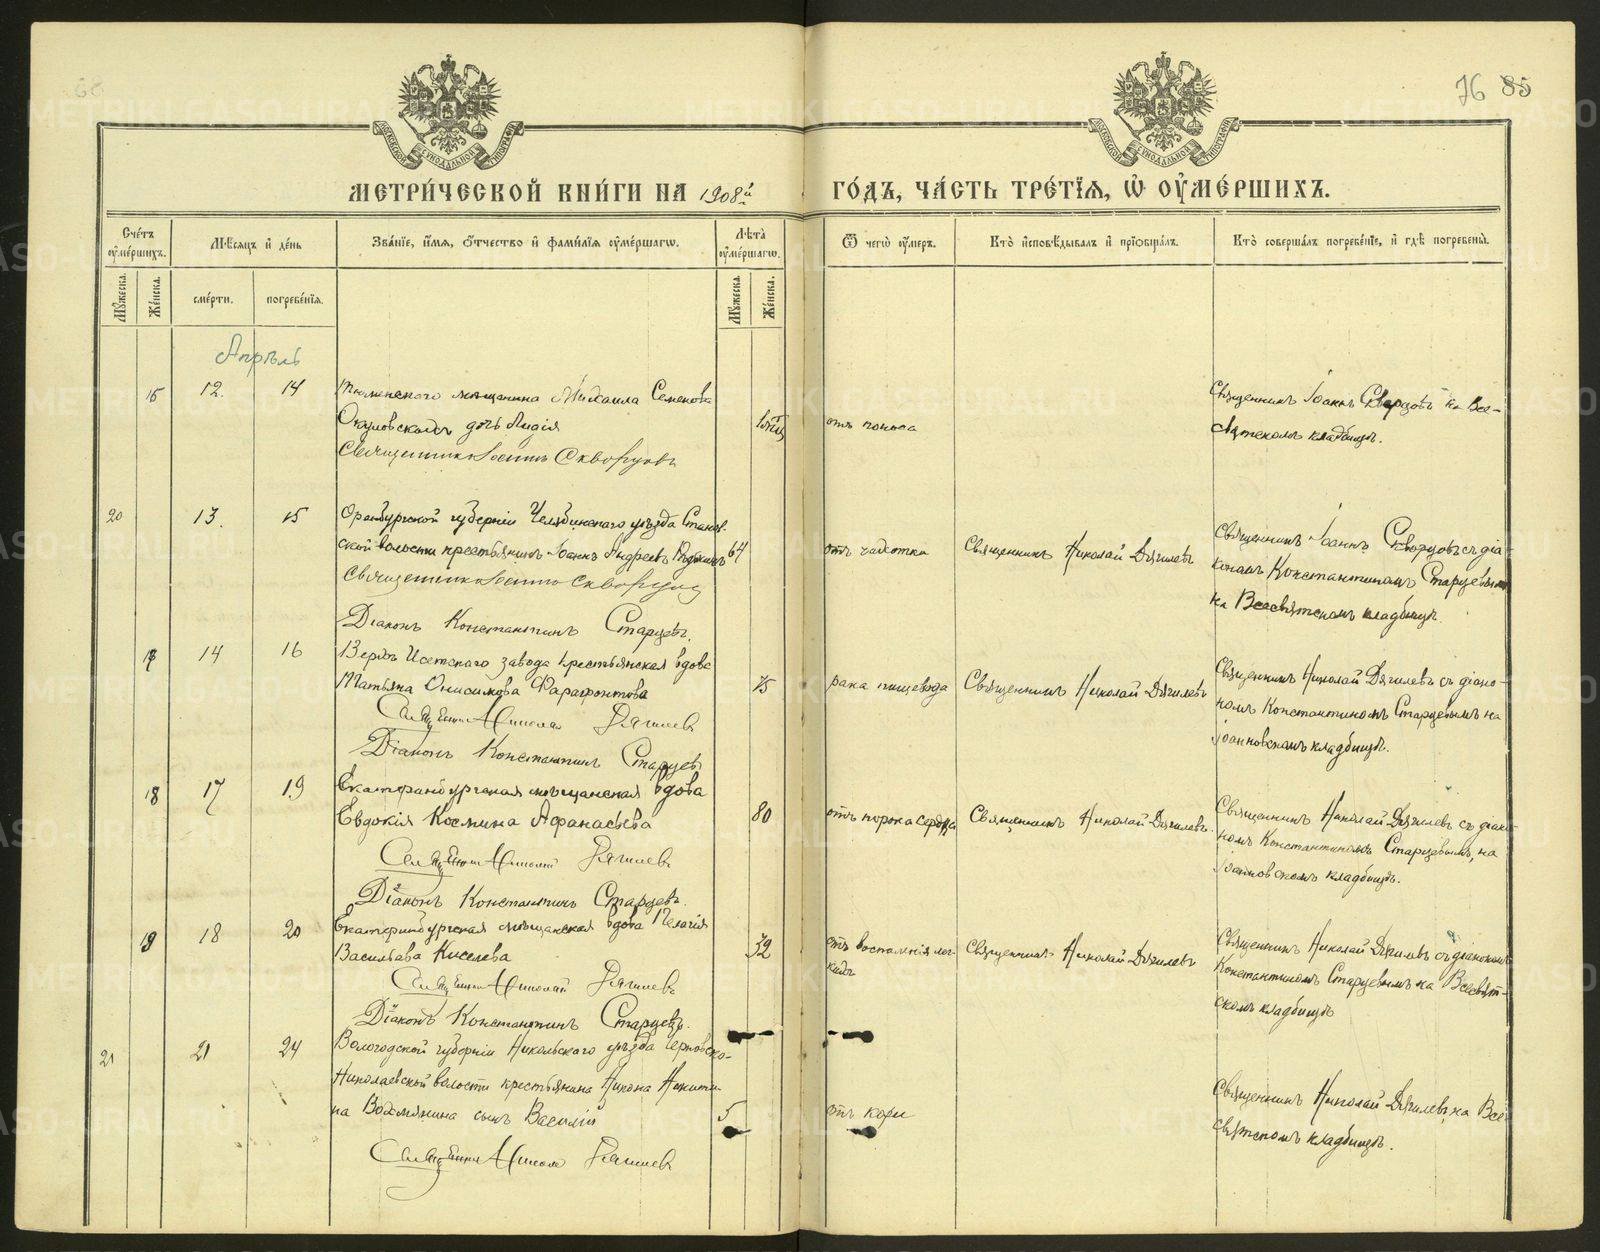 76 85
МЕТРИ́ЧЕСКОЙ КНИ́ГИ НА 1908й ГО́ДЪ, ЧА́СТЬ ТРЕ́ТІЯ, Ѡ ОУМЕ́РШИХЪ.
МОСКОВСКОЙ СѴНОДАЛЬНОЙ ТИПОГРАФІИ
МОСКОВСКОЙ СѴНОДАЛЬНОЙ ТИПОГРАФІИ
Сче́тъ оуме́ршихъ.
Мѣ́сяцъ и де́нь
Зва́ніе, и́мя, о́тчество и фами́лія оуме́ршагѡ.
Лѣ́та оуме́ршагѡ.
Ѿ чегѡ̀ оу́меръ.
Кто̀ исповѣ́дывалъ и пріѡбща́лъ.
Кто̀ соверша́лъ погребе́ніе, и гдѣ̀ погребены̀.
Му́жеска.
Же́нска.
сме́рти.
погребе́нія.
Му́жеска.
Же́нска.
Апрѣль
16 12. 14
Тюменскаго мѣщанина Михаила Семенова
дочь Лидія
Священникъ Іоаннъ Скворцовъ
отъ поноса
Священникъ Іоаннъ Скворцовъ на Все-
святскомъ кладбищѣ.
20 13. 15
Оренбургской губерніи Челябинскаго уѣзда
ской волости крестьянинъ Іоаннъ Андреевъ 64
Священникъ Іоаннъ Скворцовъ
Діаконъ Константинъ Старцевъ.
отъ чахотки
Священникъ Николай Дягилевъ
Священникъ Іоаннъ Скворцовъ съ діа-
кономъ Константиномъ Старцевымъ
на Всесвятскомъ кладбищѣ.
17 14 16
Верхъ Исетскаго завода крестьянская вдова
Татьяна Онисимова Фарафонтова
Священникъ Николай Дягилевъ
Діаконъ Константинъ Старцевъ
75
рака пищевода
Священникъ Николай Дягилевъ
Священникъ Николай Дягилевъ съ діако-
номъ Константиномъ Старцевымъ на
Іоанновскомъ кладбищѣ.
18 17 19
Екатеринбургская мѣщанская вдова
Евдокія Космина Афанасьева
Священникъ Николай Дягилевъ
Діаконъ Константинъ Старцевъ.
80
отъ порока сердца
Священникъ Николай Дягилевъ.
Священникъ Николай Дягилевъ съ діако-
номъ Константиномъ Старцевымъ, на
Іоанновскомъ кладбищѣ.
19 18 20
Екатеринбургская мѣщанская вдова Пелагія
Васильева Киселева
Священникъ Николай Дягилевъ
Діаконъ Константинъ Старцевъ.
32
отъ воспаленія лег-
кихъ
Священникъ Николай Дягилевъ
Священникъ Николай Дягилевъ съ діакономъ
Константиномъ Старцевымъ на Всесвят-
скомъ кладбищѣ
21 21 24
Вологодской губерніи Никольскаго уѣзда
Николаевской волости крестьянина Никона Никити-
на сынъ Василій
Священникъ Николай Дягилевъ
5
отъ кори
Священникъ Николай Дягилевъ на Все-
святскомъ кладбищѣ.
METRIKI.GASO-URAL.RU